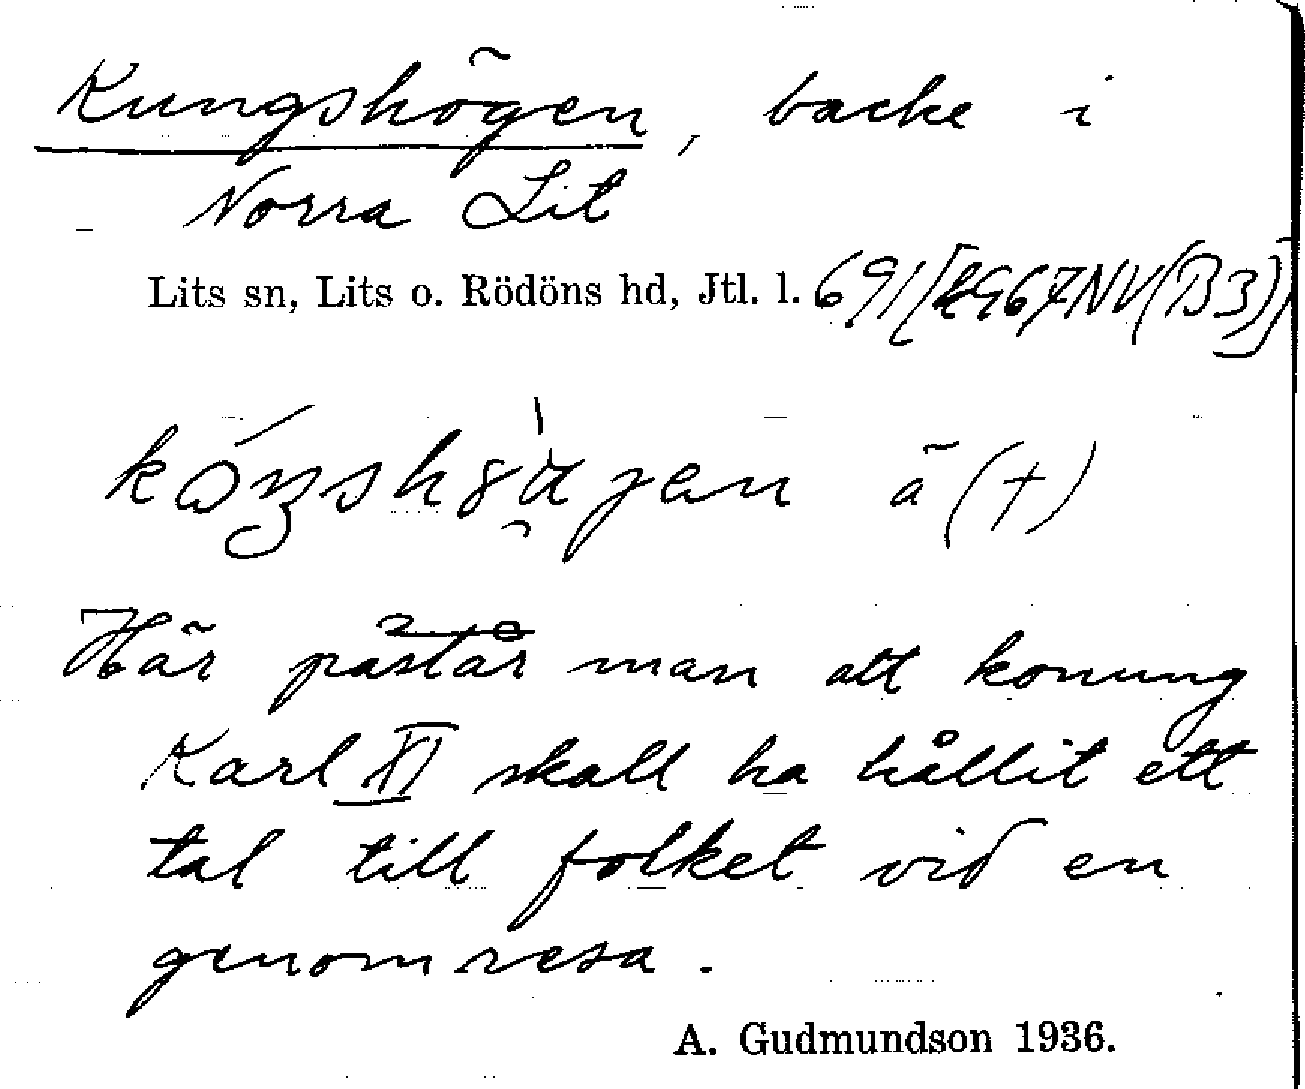 Kungshögen, backe i
Norra Lit
Lits sn, Lits o. Rödöns hd, Jtl. l.
ä (+)
Här påstår man att konung
Karl XI skall ha hållit ett
tal till folket vid en
genomresa.
A. Gudmundson 1936.